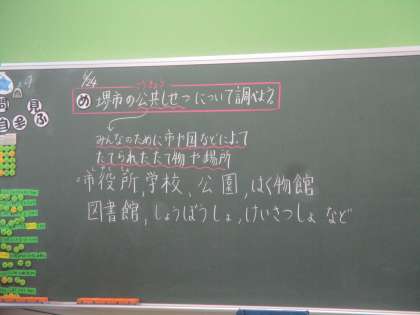 6/24
こうきょう
め 堺市の公共しせつについて調べよう
みんなのために市や国などによって
たてられたたて物や場所
・市役所,学校,公園,はく物館
図書館,しょうぼうしょ,けいさつしょ など
見